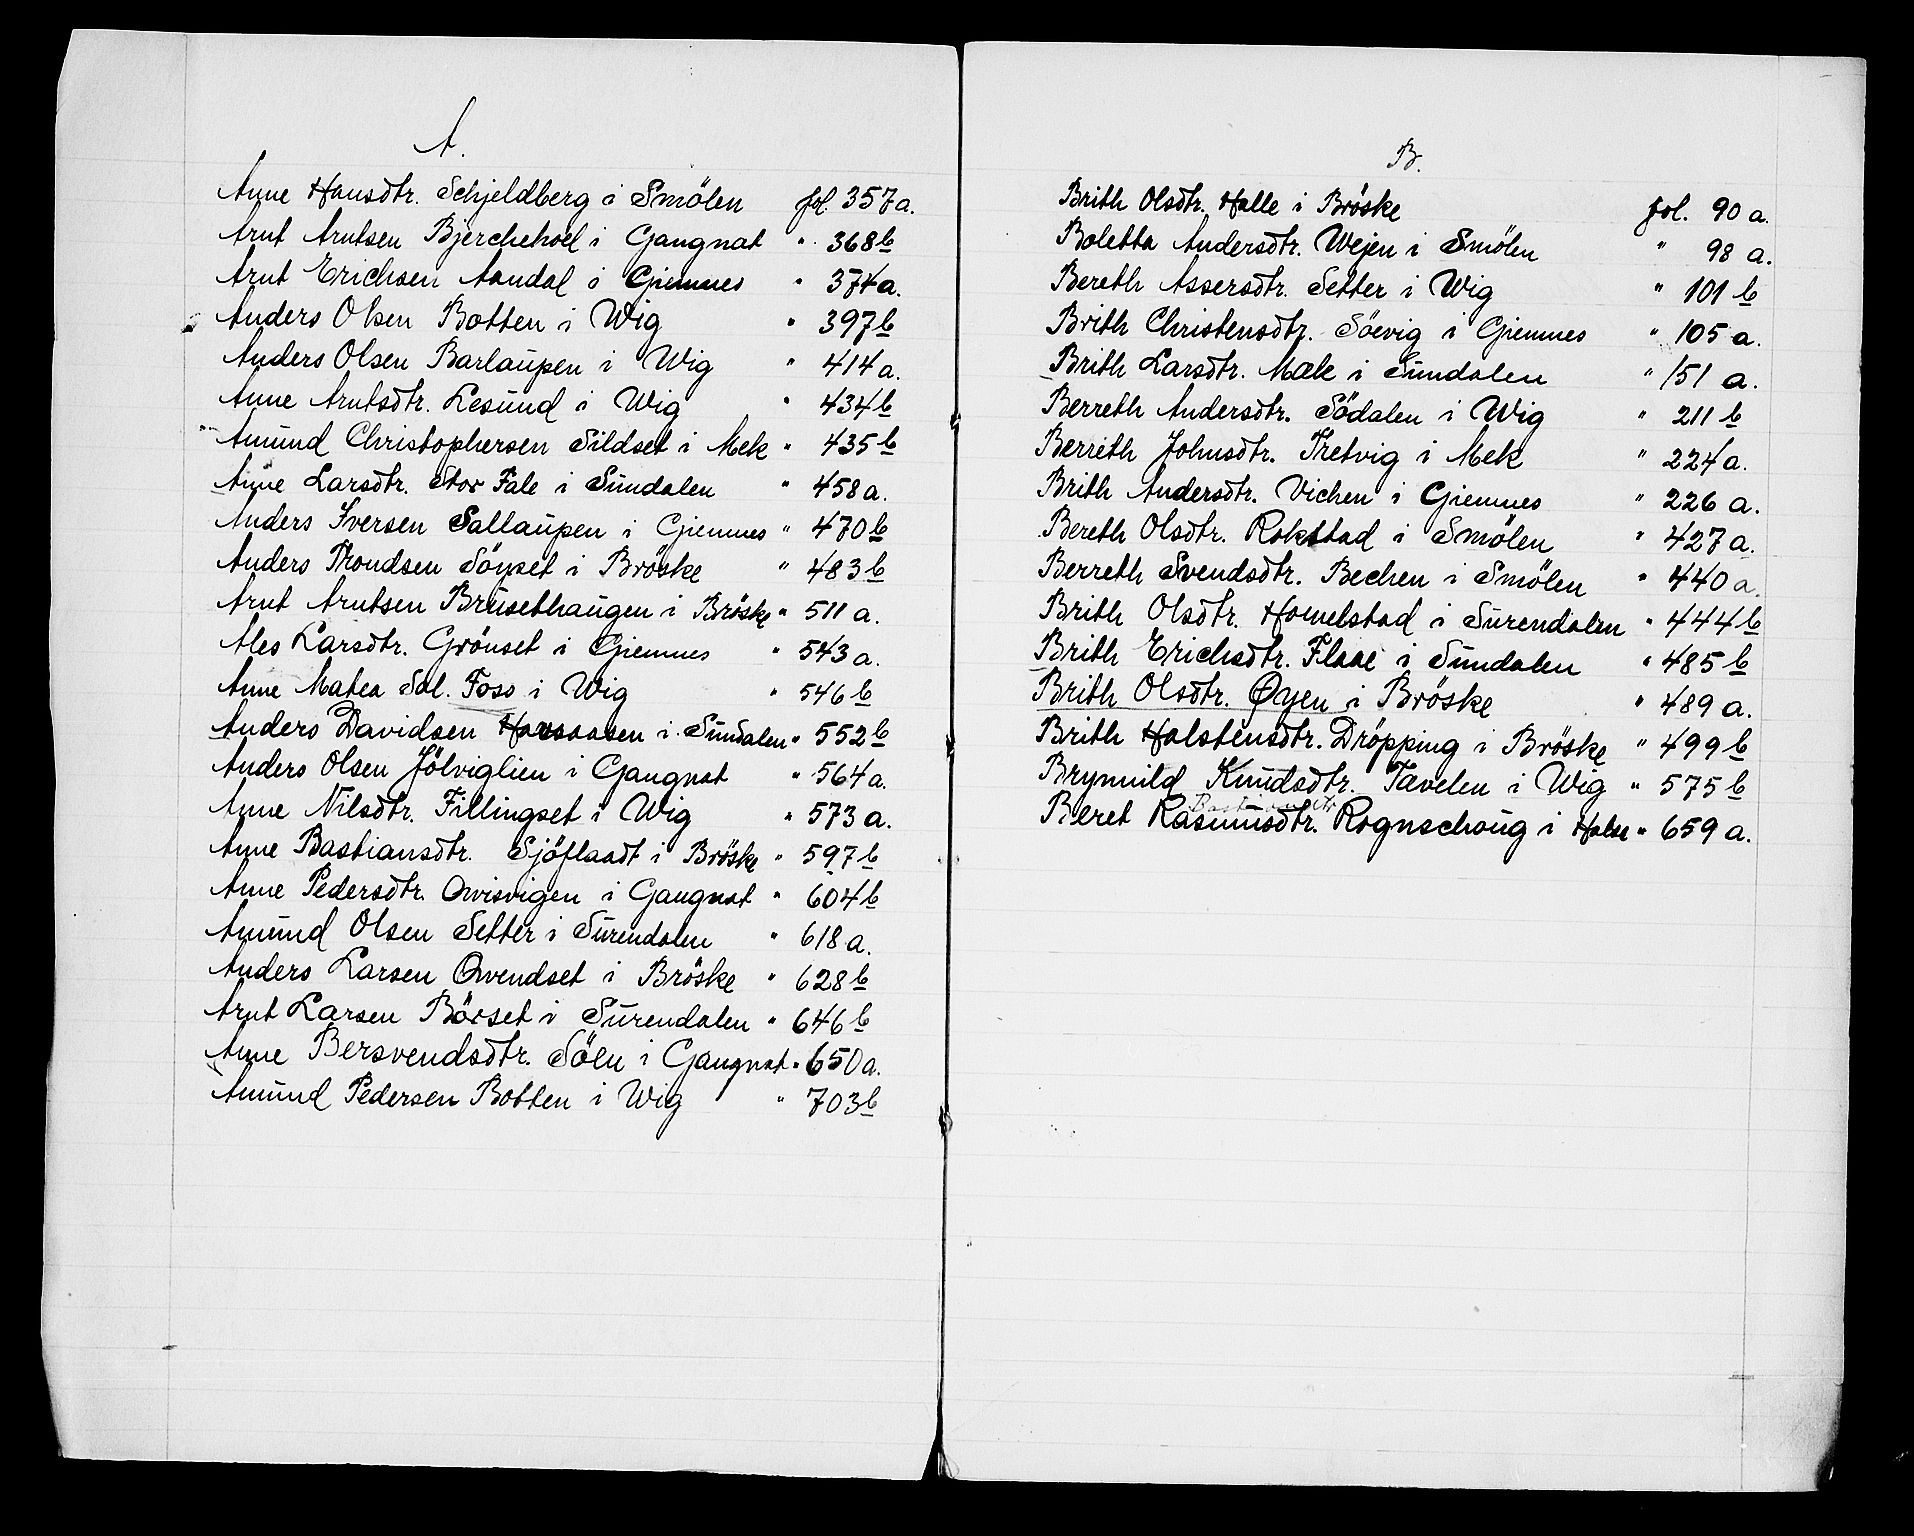 A.
Anne Hansdtr. Schjeldberg i Smölen fol. 357 a.
Arnt Arntsen Bjerchehoel i Gangnat " 368 b
Arnt Erichsen Aandal i Giemnes " 374 a.
Anders Olsen Botten i Wig " 397 b
Anders Olsen Barlaupen i Wig " 414 a.
Anne Arntsdtr. Lesund i Wig " 434 b
Amund Christophersen Sildset i Mek " 435 b
Anne Larsdtr. Stor Fale i Sundalen " 458 a.
Anders Iversen Sallaupen i Giemnes " 470 b
Anders Trondsen Söyset i Bröske " 483 b
Arnt Arntsen Brusethaugen i Bröske " 511 a.
Ales Larsdtr. Grönset i Giemnes " 543 a.
Anne Matea Sal. Foss i Wig " 546 b
Anders Davidsen Horsaasen i Sundalen " 552 b
Anders Olsen Jölviglien i Gangnat " 564 a.
Anne Nilsdtr. Fillingset i Wig " 573 a.
Anne Bastiansdtr. Sjöflaadt i Bröske " 597 b
Anne Pedersdtr. Qvisvigen i Gangnat " 604 b
Amund Olsen Setter i Surendalen " 618 a.
Anders Larsen Qvendset i Bröske " 628 b
Arnt Larsen Börset i Surendalen " 646 b
Anne Bersvendsdtr. Söln i Gangnat " 650 a.
Amund Pedersen Botten i Wig " 703 b
B.
Brith Olsdtr. Halle i Bröske fol. 90 a.
Boletta Andersdtr. Wejen i Smölen " 98 a.
Bereth Assersdtr. Setter i Wig " 101 b
Brith Christensdtr. Söevig i Giemnes " 105 a.
Brith Larsdtr. Mæle i Sundalen " 151 a.
Berreth Andersdtr. Södalen i Wig " 211 b
Berreth Johnsdtr. Tretvig i Mek " 224 a.
Brith Andersdtr. Vichen i Giemnes " 226 a.
Bereth Olsdtr. Rokstad i Smölen " 427 a.
Berreth Svendsdtr. Bechen i Smölen " 440 a.
Brith Olsdtr. Homelstad i Surendalen " 444 b
Brith Erichsdtr. Flaae i Sundalen " 485 b
Brith Olsdtr. Øyen i Bröske " 489 a.
Brith Halstensdtr. Dröpping i Bröske " 499 b
Brynnild Knudsdtr. Tævelen i Wig " 575 b
Beret Rasmusdtr. Rognschoug i Halse " 659 a.